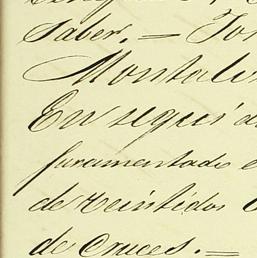 Saber. = Jo
Montalv
En segui da
juramentado e
de veintidos
de Cruces. =